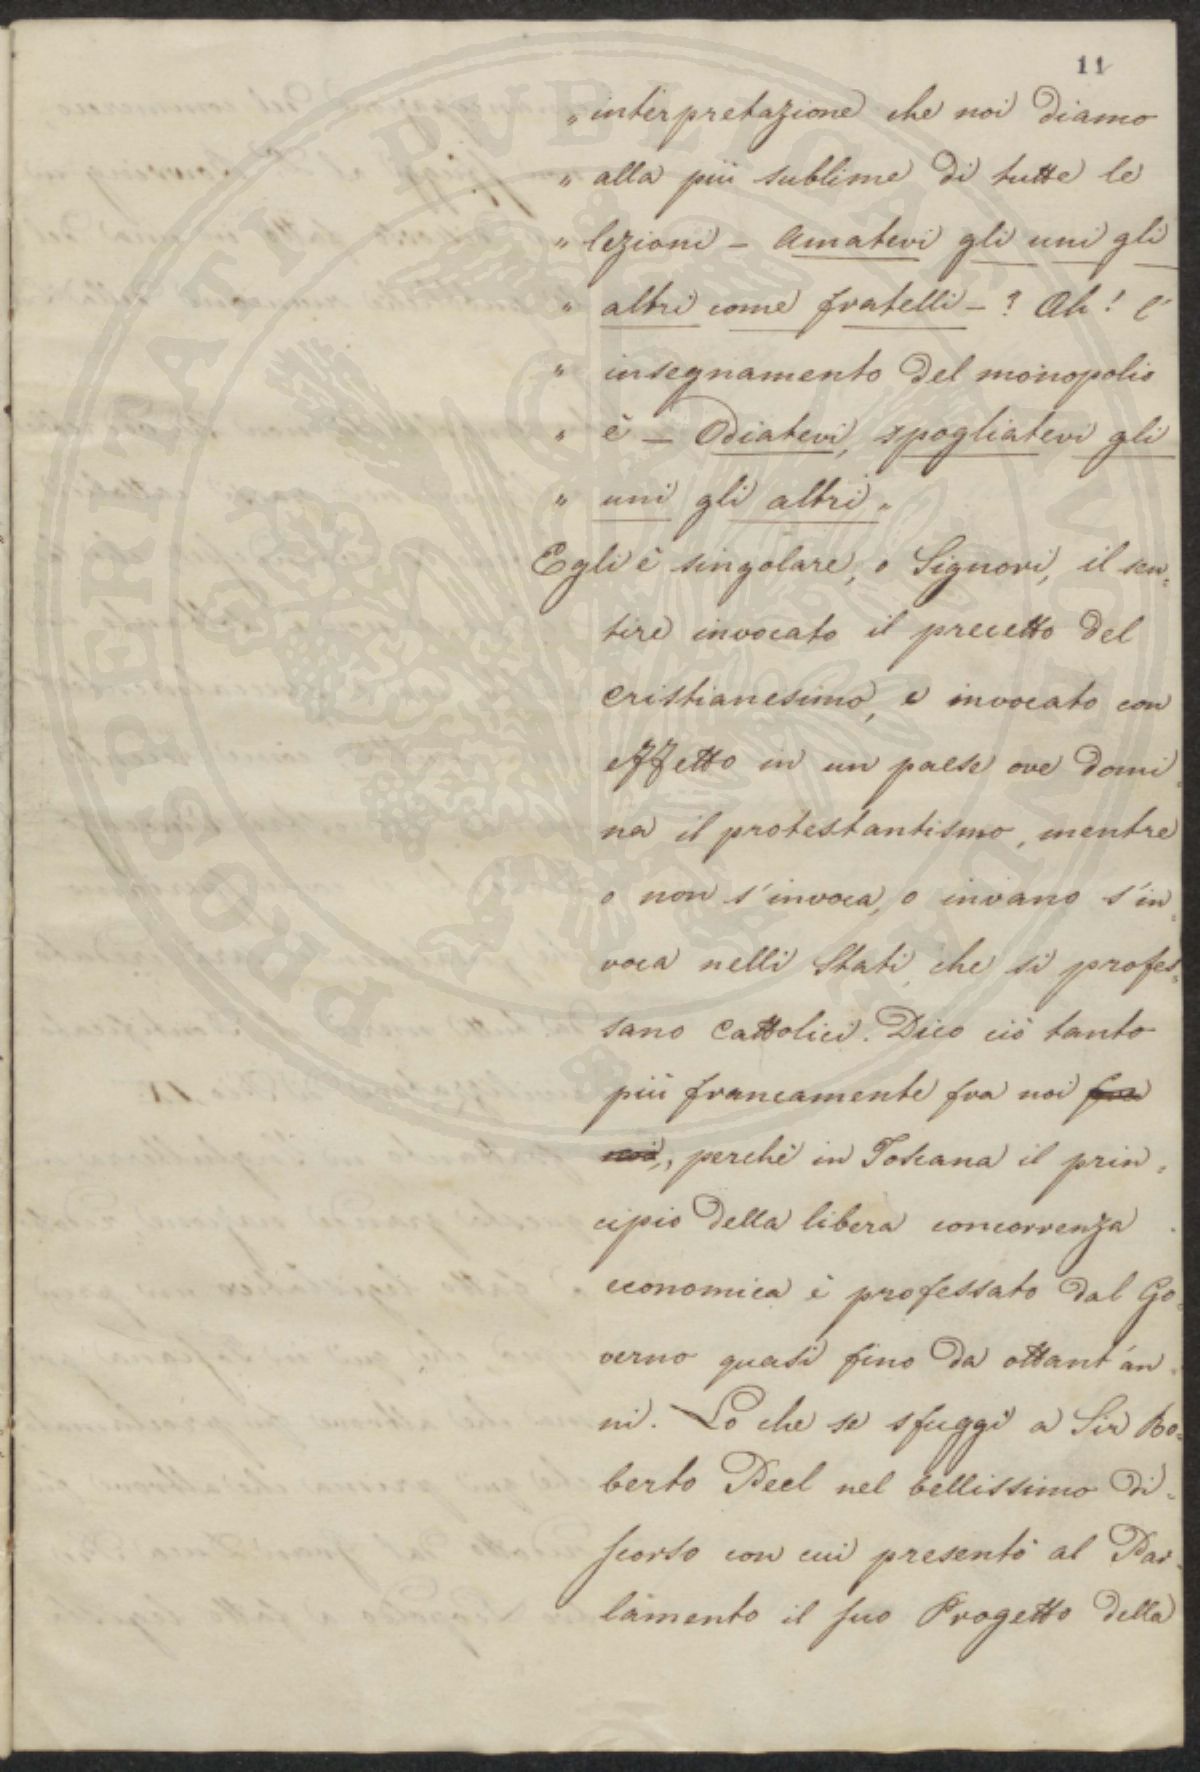 11
„ interpretazione che noi diamo
„ alla più sublime di tutte le
„ lezioni – Amatevi gli uni gli
„ altri come fratelli – ? Ah! l'
„ insegnamento del monopolio
„ è – Odiatevi, spogliatevi gli
„ uni gli altri „
Egli è singolare, o Signori, il sen,
tire invocato il precetto del
cristianesimo, e invocato con
effetto in un paese ove domi,
na il protestantismo, mentre
o non s'invoca, o invano s'in,
voca nelli Stati, che si profes,
sano Cattolici. Dico ciò tanto
più francamente fra noi fra
noi, perchè in Toscana il prin,
cipio della libera concorrenza
economica è professato dal Go,
verno quasi fino da ottant'an,
ni. Lo che se sfuggì a Sir Ro,
berto Peel nel bellissimo di,
scorso con cui presentò al Par,
lamento il suo Progetto della
PROSPERITATI PVBLICAE AVGENDAE